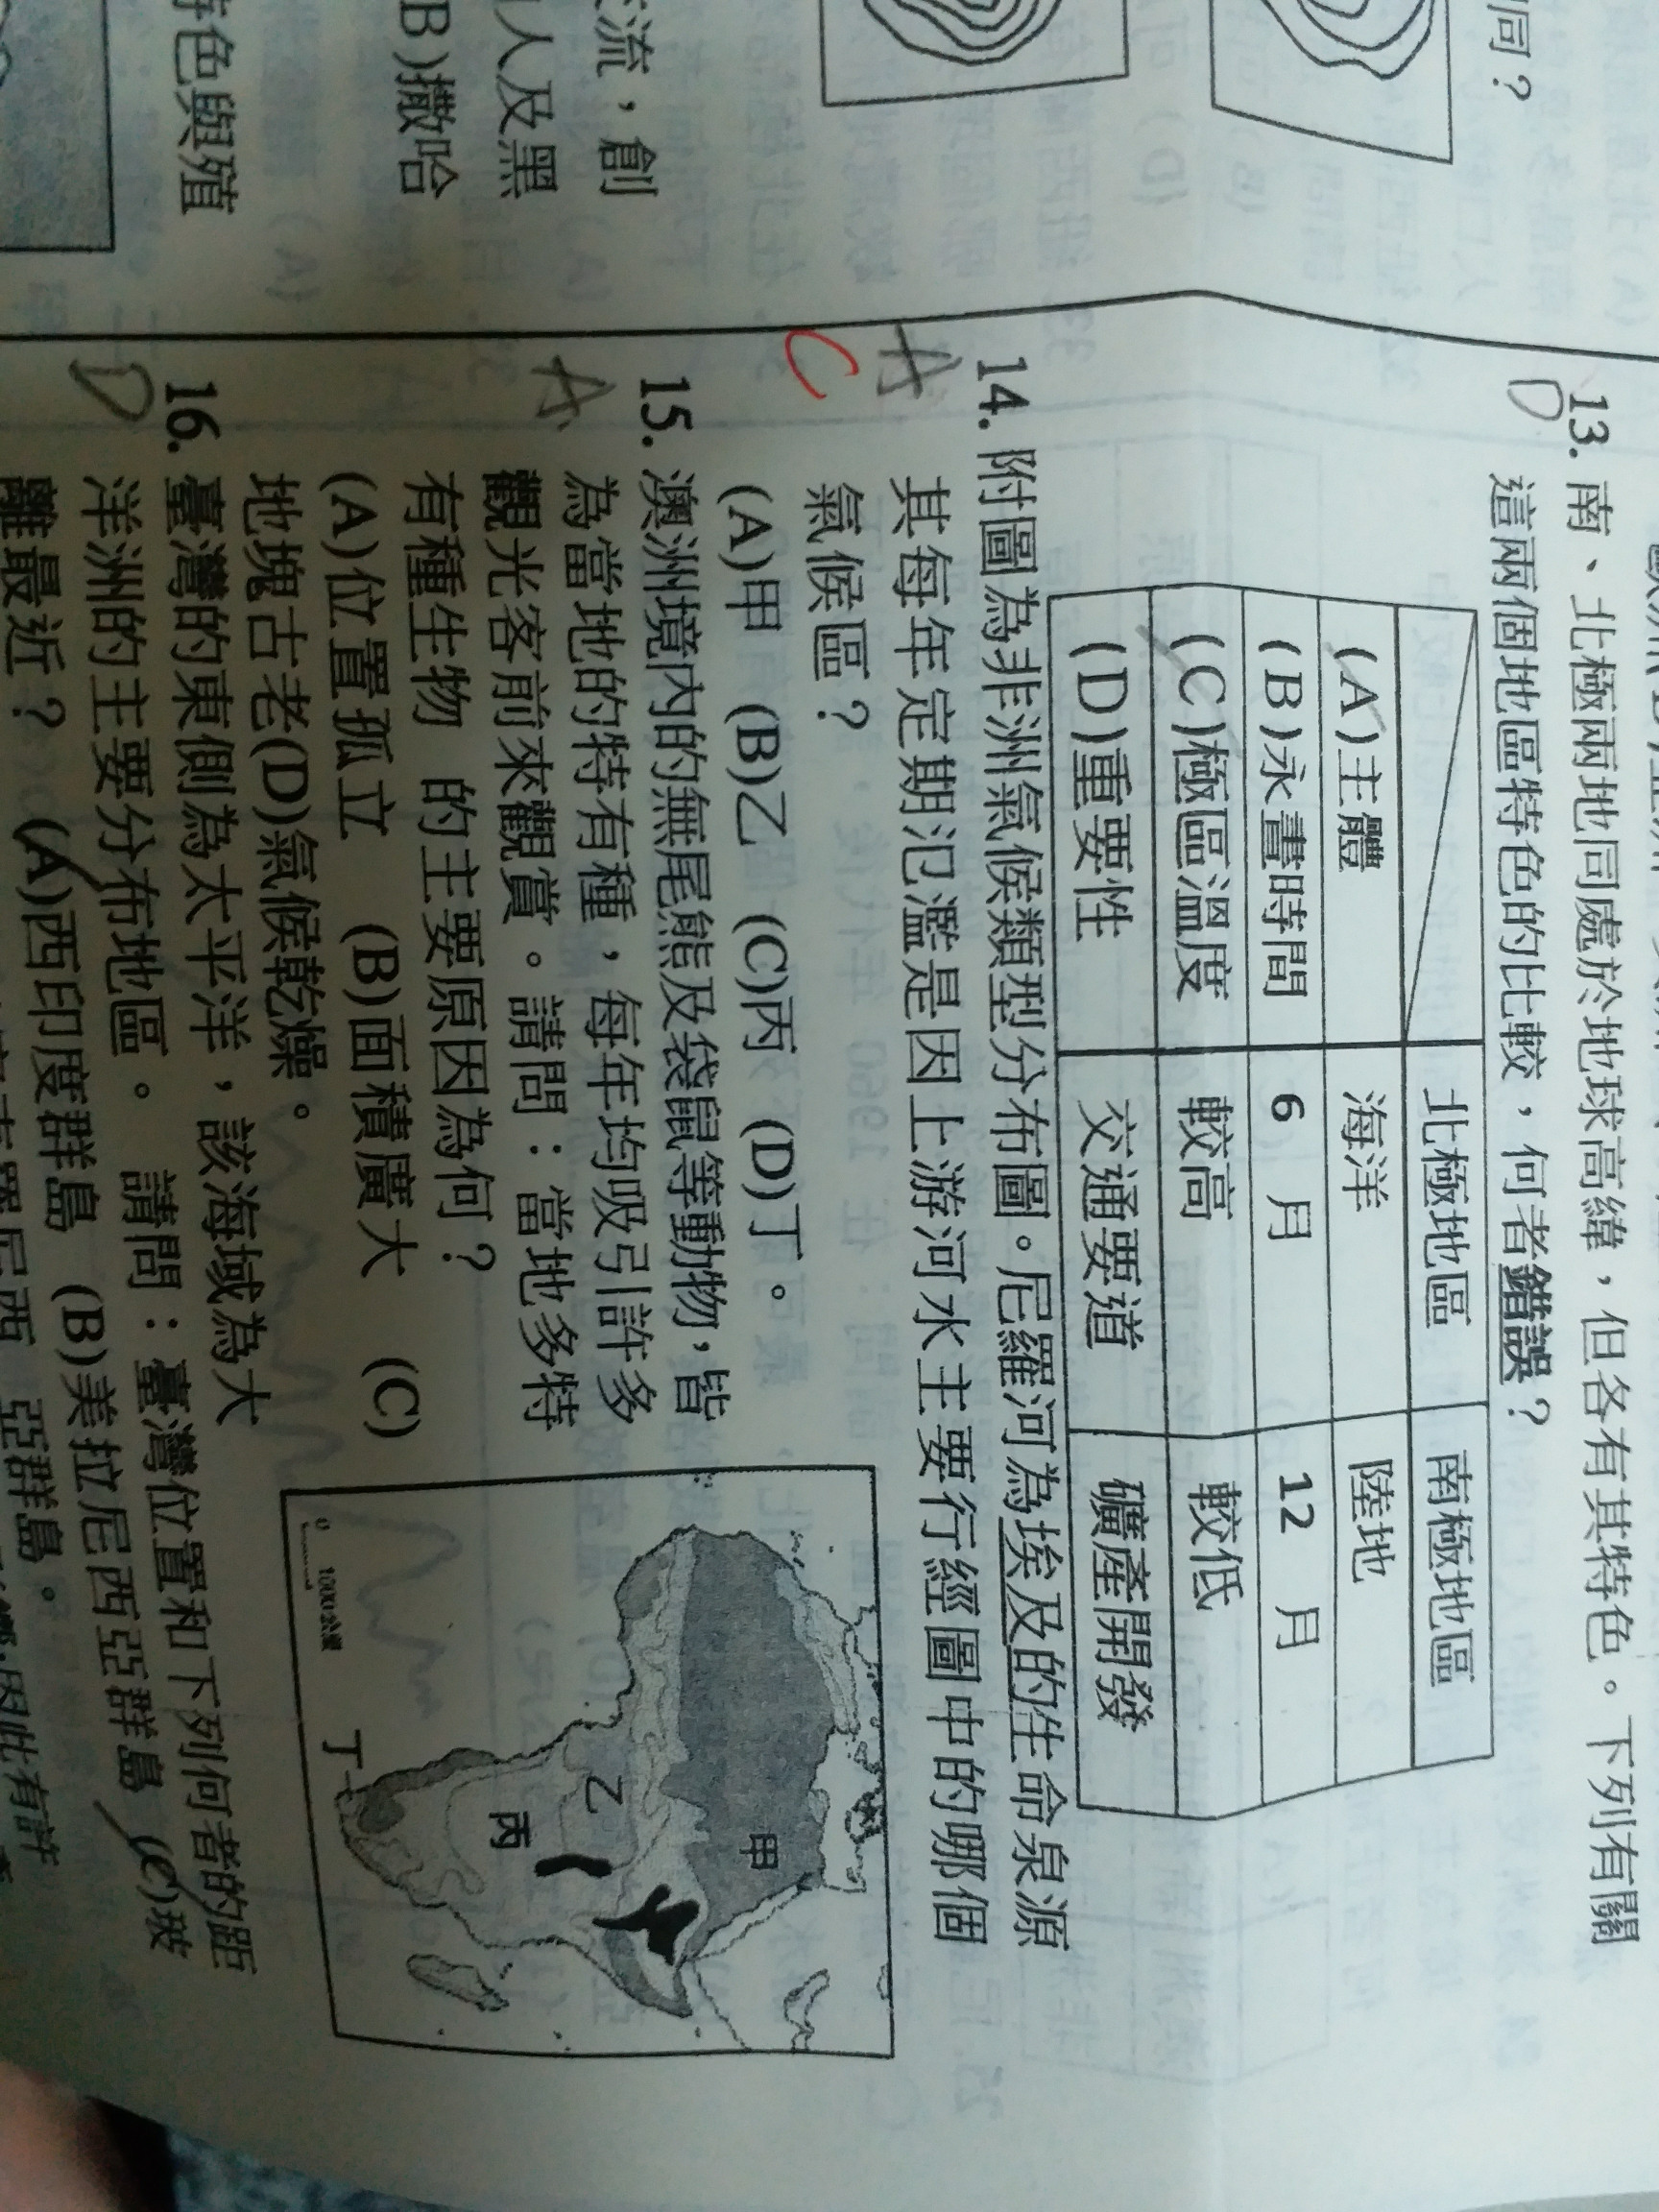 同？
流，創
人及黑
B)撒哈
色與殖
D
13. 南、北極兩地同處於地球高緯，但各有其特色。下列有關
這兩個地區特色的比較，何者錯誤？
北極地區 南極地區
(A)主體 海洋 陸地
(B)永晝時間 6 月 12 月
(C)極區溫度 較高 較低
(D)重要性 交通要道 礦產開發
A
C
14. 附圖為非洲氣候類型分布圖。尼羅河為埃及的生命泉源
其每年定期氾濫是因上游河水主要行經圖中的哪個
氣候區？
(A)甲 (B)乙 (C)丙 (D)丁。
甲
乙
丙
丁
0 1000公里
A
15. 澳洲境內的無尾熊及袋鼠等動物，皆
為當地的特有種，每年均吸引許多
觀光客前來觀賞。請問：當地多特
有種生物 的主要原因為何？
(A)位置孤立 (B)面積廣大 (C)
地塊古老(D)氣候乾燥。
D
16. 臺灣的東側為太平洋，該海域為大
洋洲的主要分布地區。 請問：臺灣位置和下列何者的距
離最近？ (A)西印度群島 (B)美拉尼西亞群島 (C)玻
亞群島。